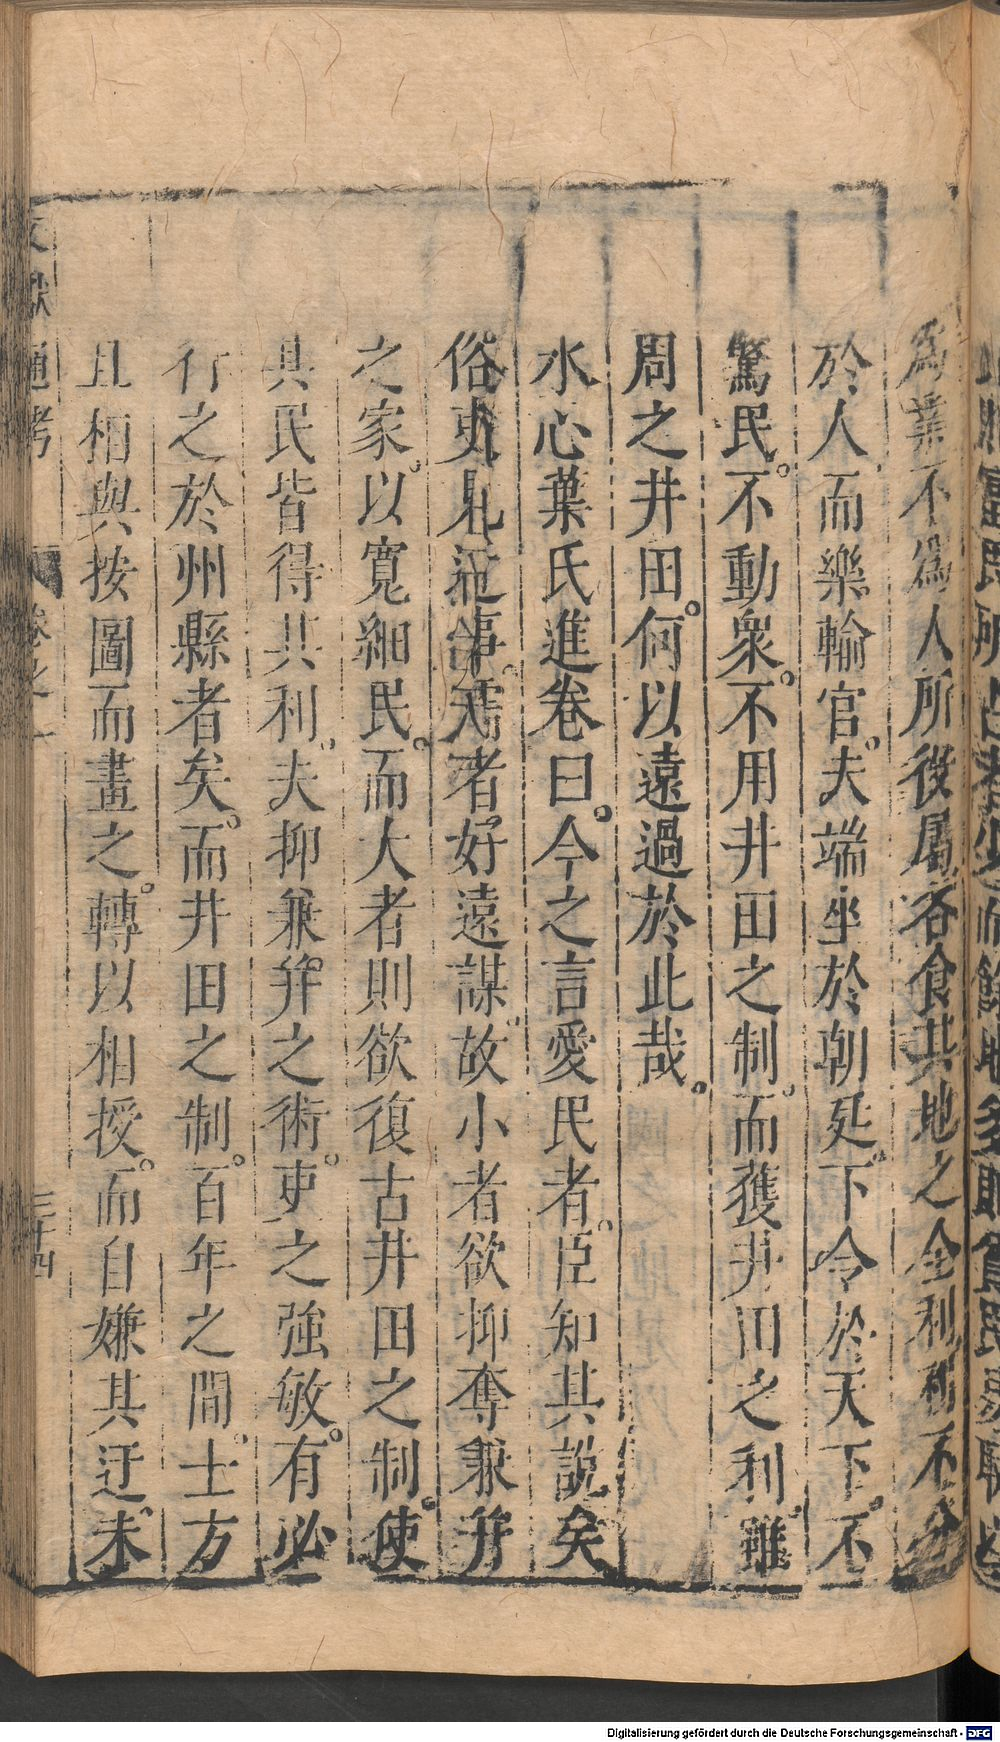 爲業不爲人所役屬各食其地之全利利不分
於人而樂輸官。夫端坐於朝廷。下令於天下。不
驚民。不動衆。不用井田之制。而獲井田之利。雖
周之井田。何以遠過於此哉。
水心葉氏進卷曰。今之言愛民者。臣知其說矣
俗吏見近事。儒者好遠謀。故小者欲抑奪兼并
之家。以寬細民。而大者則欲復古井田之制。使
其民皆得其利。夫抑兼并之術。吏之強敏。有必
行之於州縣者矣。而井田之制。百年之間。士方
且相與按圖而畫之。轉以相授。而自嫌其迂。未
文獻通考 卷之一 三十四
Digitalisierung gefördert durch die Deutsche Forschungsgemeinschaft - DFG